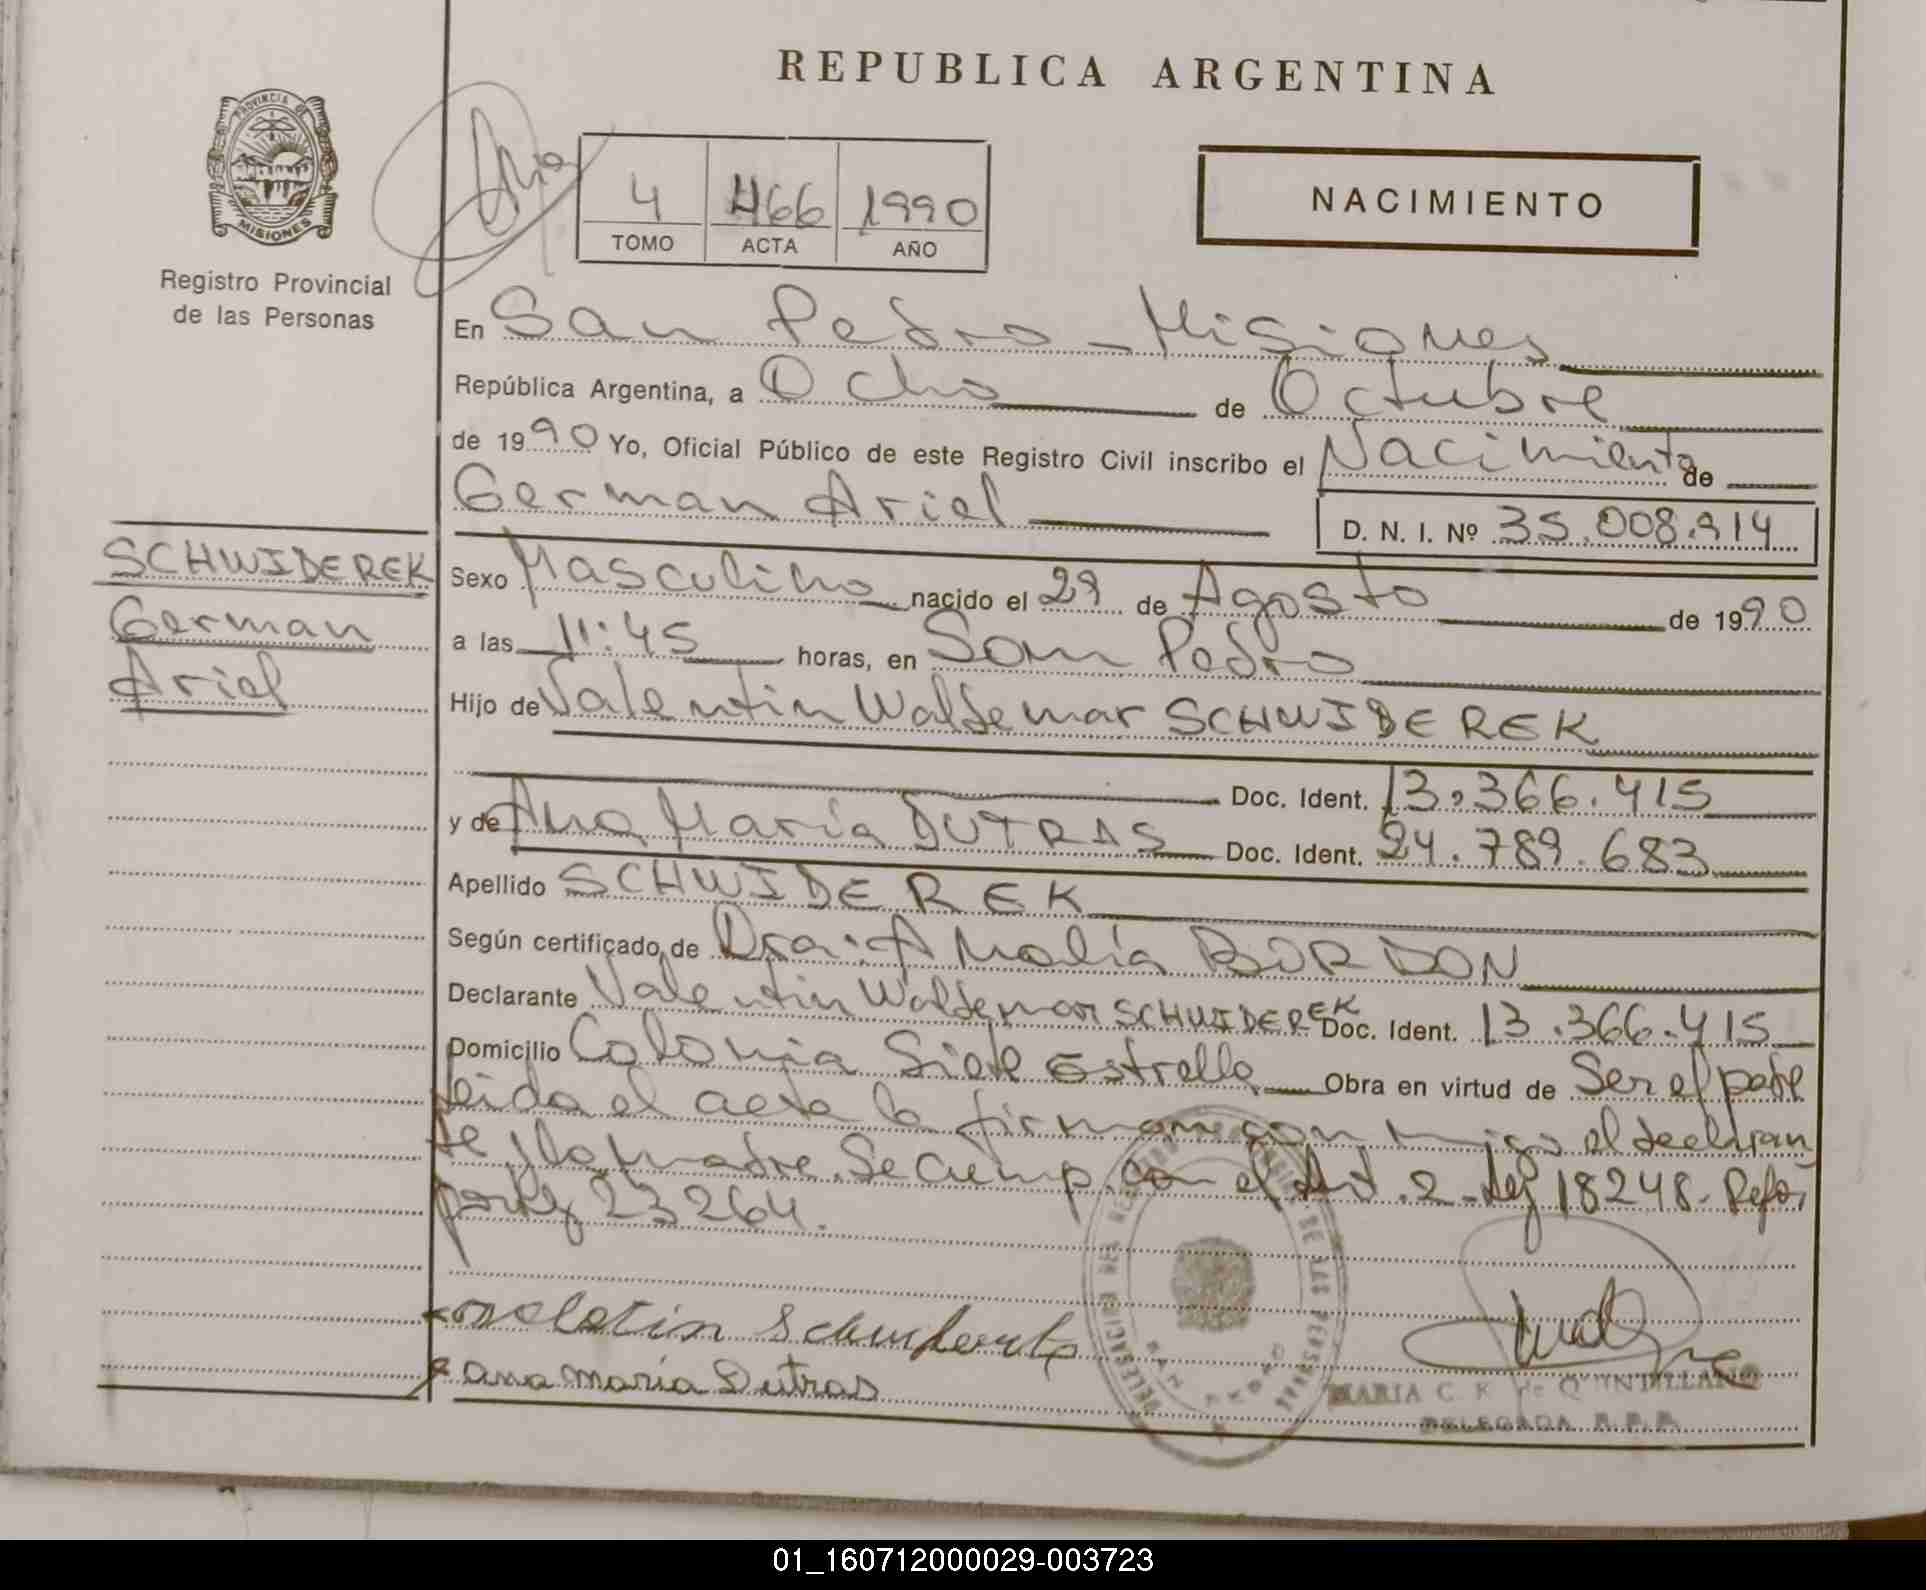 REPUBLICA ARGENTINA
PROVINCIA DE
MISIONES
Registro Provincial
de las Personas
4 466 1990
TOMO ACTA AÑO
NACIMIENTO
En San Pedro - Misiones
República Argentina, a Ocho de Octubre
de 1990 Yo, Oficial Público de este Registro Civil inscribo el Nacimiento de
German Ariel
D. N. I. Nº 35.008.914
SCHWIDEREK
German
Ariel
Sexo Masculino nacido el 29 de Agosto de 1990
a las 11:45 horas, en San Pedro
Hijo de Valentin Waldemar SCHWIDEREK
Doc. Ident. 13.366.415
y de Ana María DUTRAS Doc. Ident. 24.789.683
Apellido SCHWIDEREK
Según certificado de Dra. Amalia BORDON
Declarante Valentin Waldemar SCHWIDEREK Doc. Ident. 13.366.415
Domicilio Colonia Siete Estrella Obra en virtud de Ser el padre
leida el acta la firman con migo el declaran
te y la madre. Se cump. con el Art. 2 - Ley 18248 - Refor
por ley 23264.
Ana maria Dutras
SAN PEDRO
MARIA C. F. de QUINTILLANO
DELEGADA R.P.P.
01_160712000029-003723